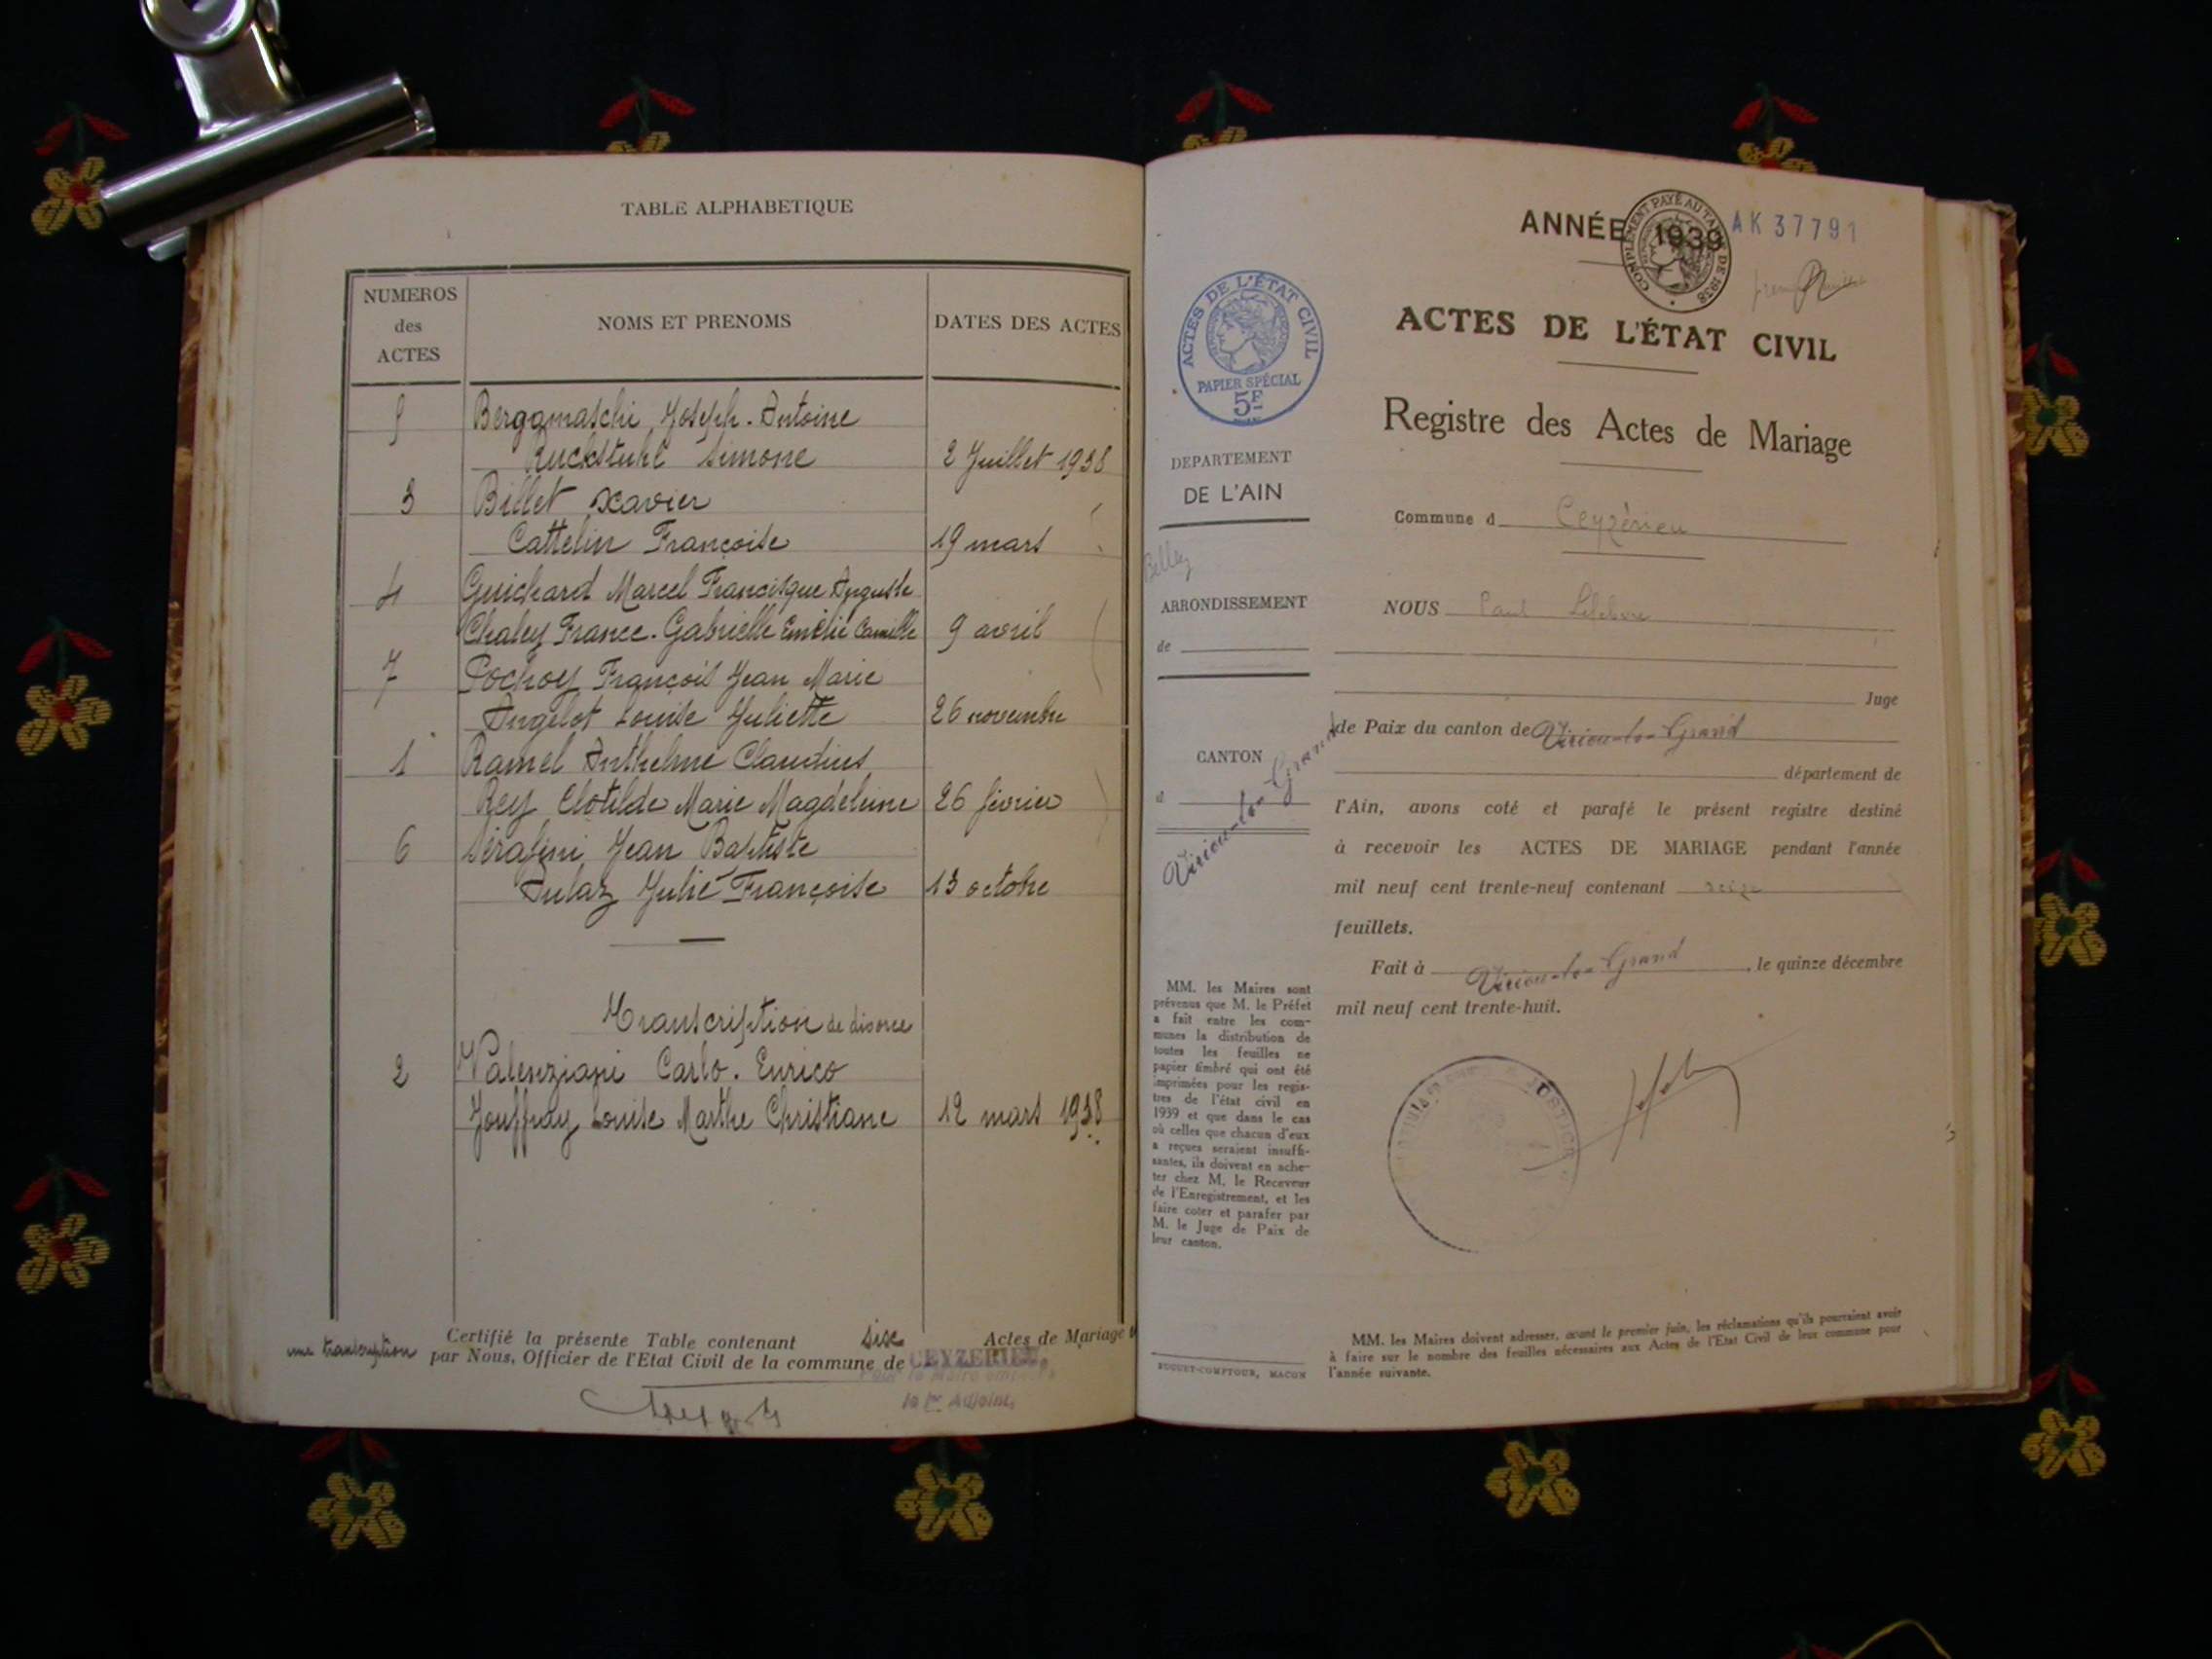 TABLE ALPHABETIQUE
NUMEROS
des
ACTES
NOMS ET PRENOMS
DATES DES ACTES
5 Bergamaschi Joseph. Antoine
Ruckstuhl Simone 2 Juillet 1938
3 Billet Xavier
Cattelin Françoise 19 mars
4 Guichard Marcel Francisque Auguste
Chaley France. Gabrielle Emélie Camille 9 avril
7 Pochoy François Jean Marie
Angelot Louise Juliette 26 novembre
1 Ramel Anthelme Claudius
Rey Clotilde Marie Magdeleine 26 février
6 Sérafini Jean Baptiste
Aulaz Julie Françoise 13 octobre
Transcription de divorce
2 Valenziani Carlo. Enrico
Jouffray Louise Marthe Christiane 12 mars 1938
Certifié la présente Table contenant six Actes de Mariage
une transcription par Nous, Officier de l'Etat Civil de la commune de CEYZERIEU,
le 1er Adjoint,
ANNÉE 1939 AK 37791
COMPLÉMENT PAYÉ AU TARIF DE 1938
ACTES DE L'ÉTAT CIVIL
PAPIER SPÉCIAL
5F
ACTES DE L'ÉTAT CIVIL
Registre des Actes de Mariage
DEPARTEMENT
DE L'AIN
Belley
ARRONDISSEMENT
de
CANTON
d
Virieu-le-Grand
MM. les Maires sont
prévenus que M. le Préfet
a fait entre les com-
munes la distribution de
toutes les feuilles de
papier timbré qui ont été
imprimées pour les regis-
tres de l'état civil en
1939 et que dans le cas
où celles que chacun d'eux
a reçues seraient insuffi-
santes, ils doivent en ache-
ter chez M. le Receveur
de l'Enregistrement, et les
faire coter et parafer par
M. le Juge de Paix de
leur canton.
BUGUET-COMPTOUR, MACON
Commune d Ceyzérieu
NOUS Paul Lefebvre
Juge
de Paix du canton de Virieu-le-Grand
département de
l'Ain, avons coté et parafé le présent registre destiné
à recevoir les ACTES DE MARIAGE pendant l'année
mil neuf cent trente-neuf contenant seize
feuillets.
Fait à Virieu-le-Grand, le quinze décembre
mil neuf cent trente-huit.
MM. les Maires doivent adresser, avant le premier juin, les réclamations qu'ils pourraient avoir
à faire sur le nombre des feuilles nécessaires aux Actes de l'Etat Civil de leur commune pour
l'année suivante.